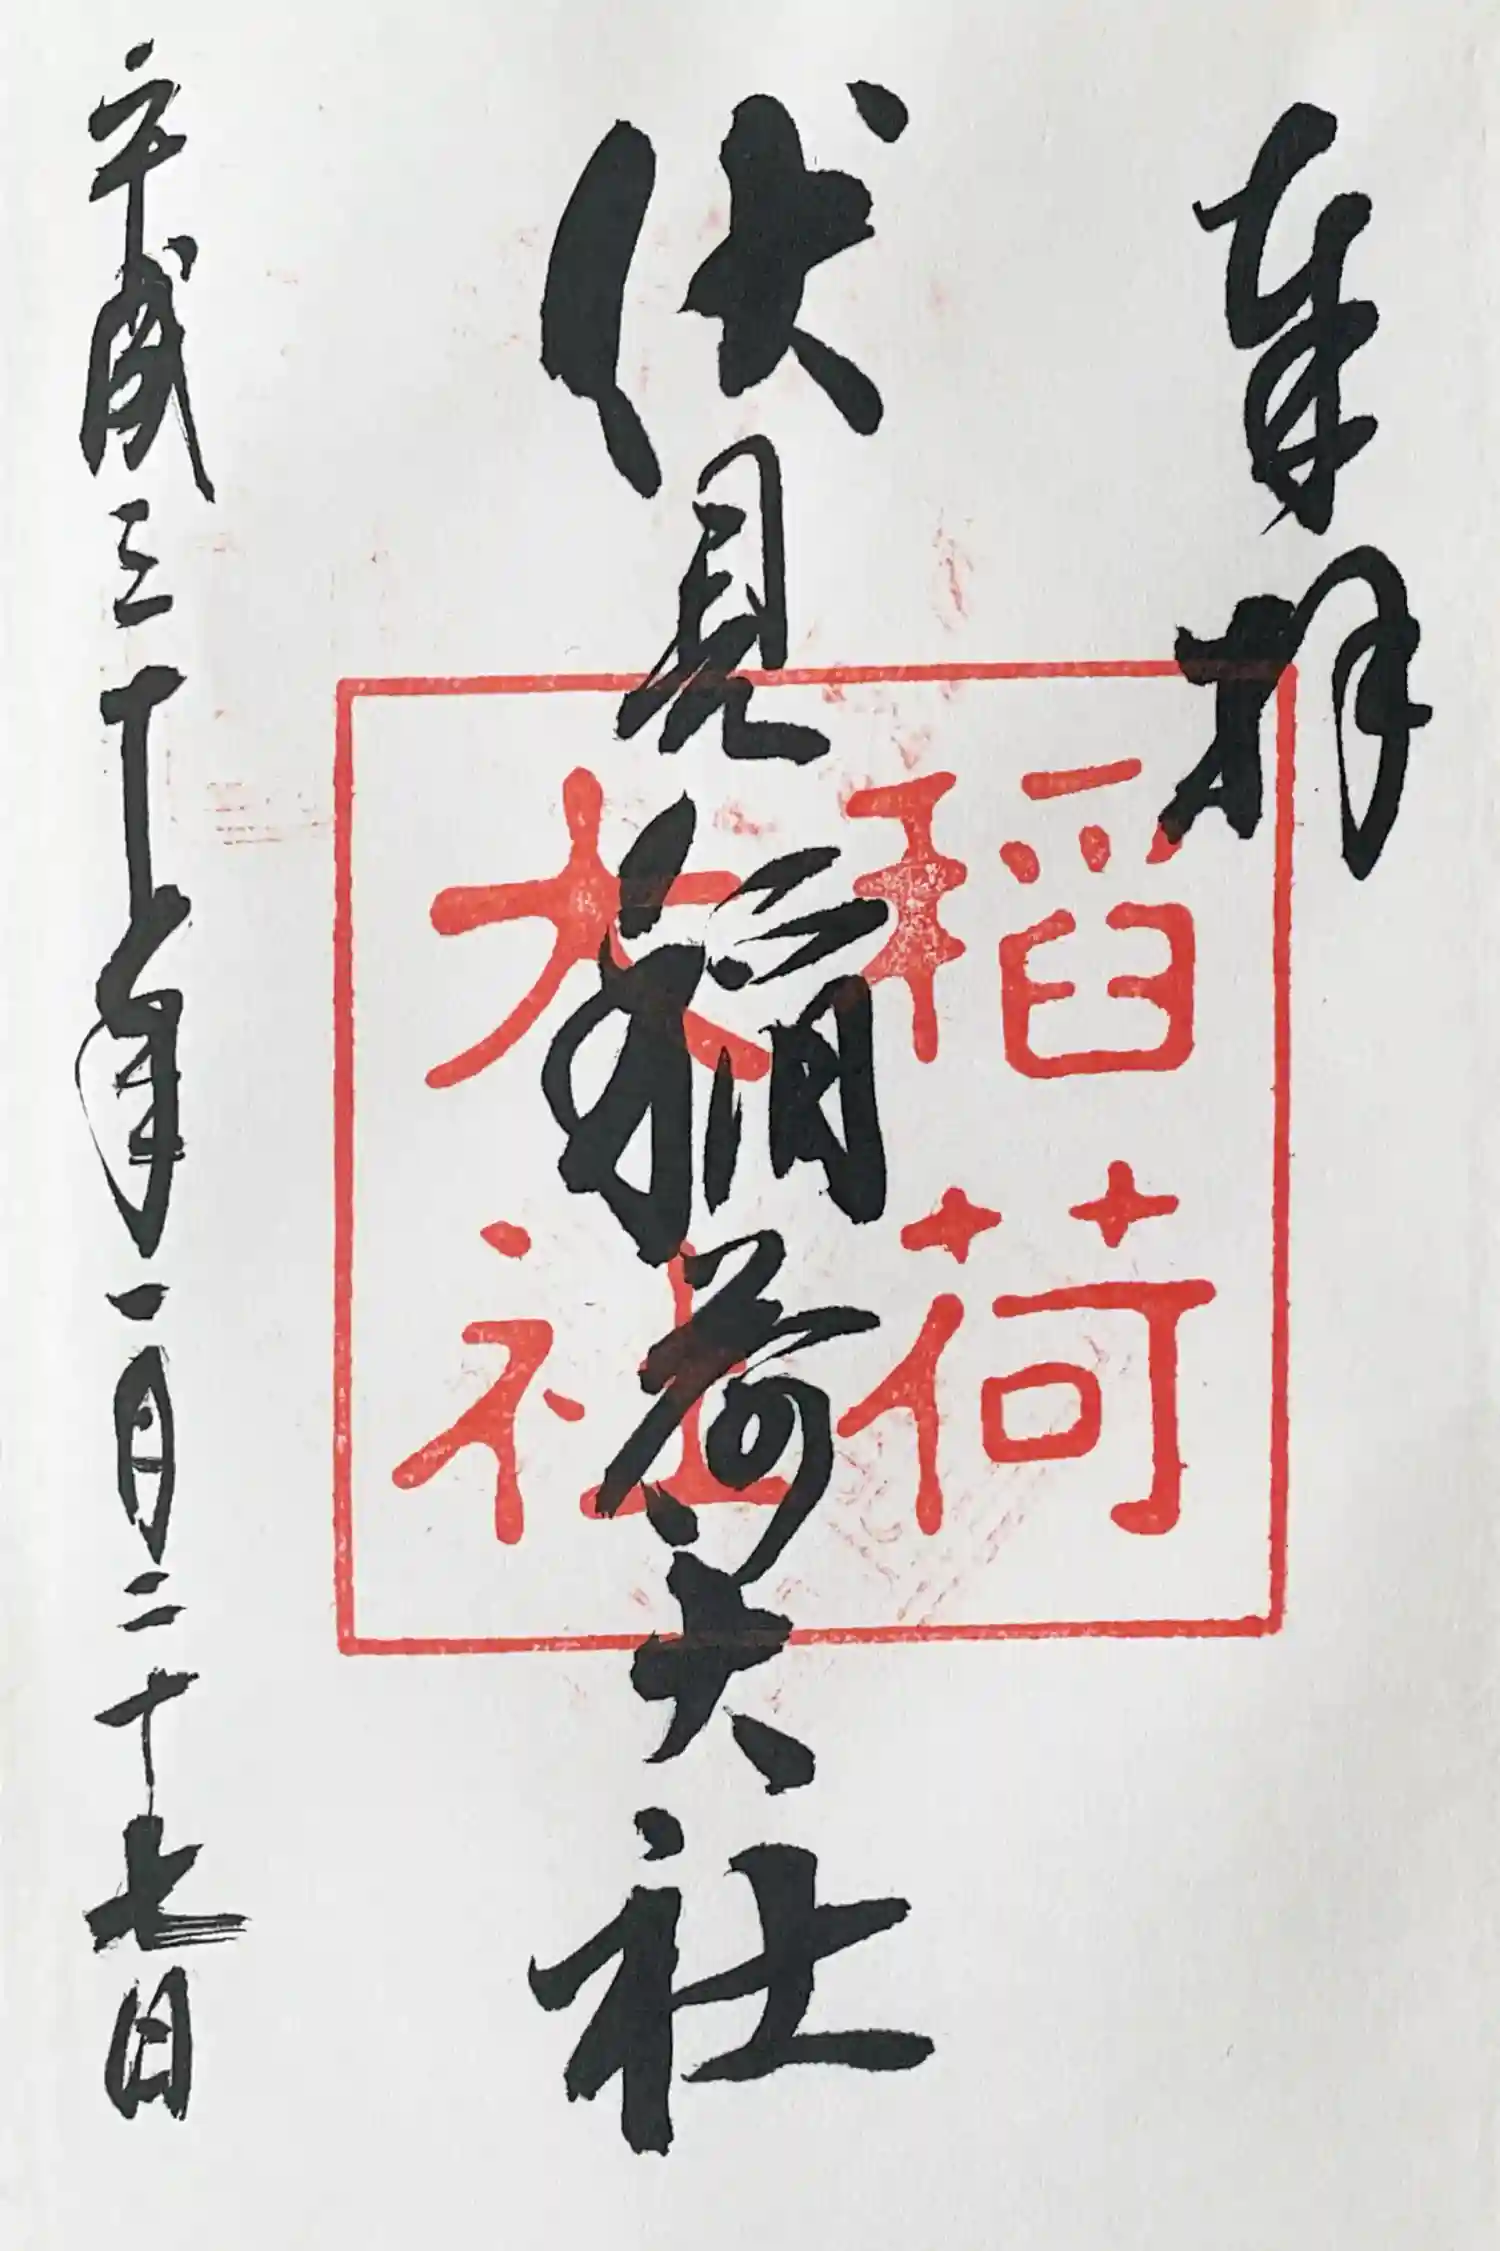 奉拝
伏見稲荷大社
平成三十年一月二十七日
稲荷
大社